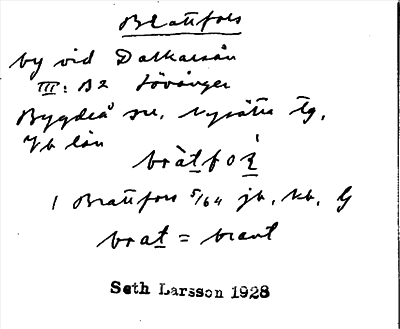 Brattfors
by vid Dalkarsån
III: B2 Lövånger
Bygdeå sn, Nysätra tg,
Vb län
bràtfóʂ
1 Brattfors 5/64 jb, kb, G
brat = brant
Seth Larsson 1928